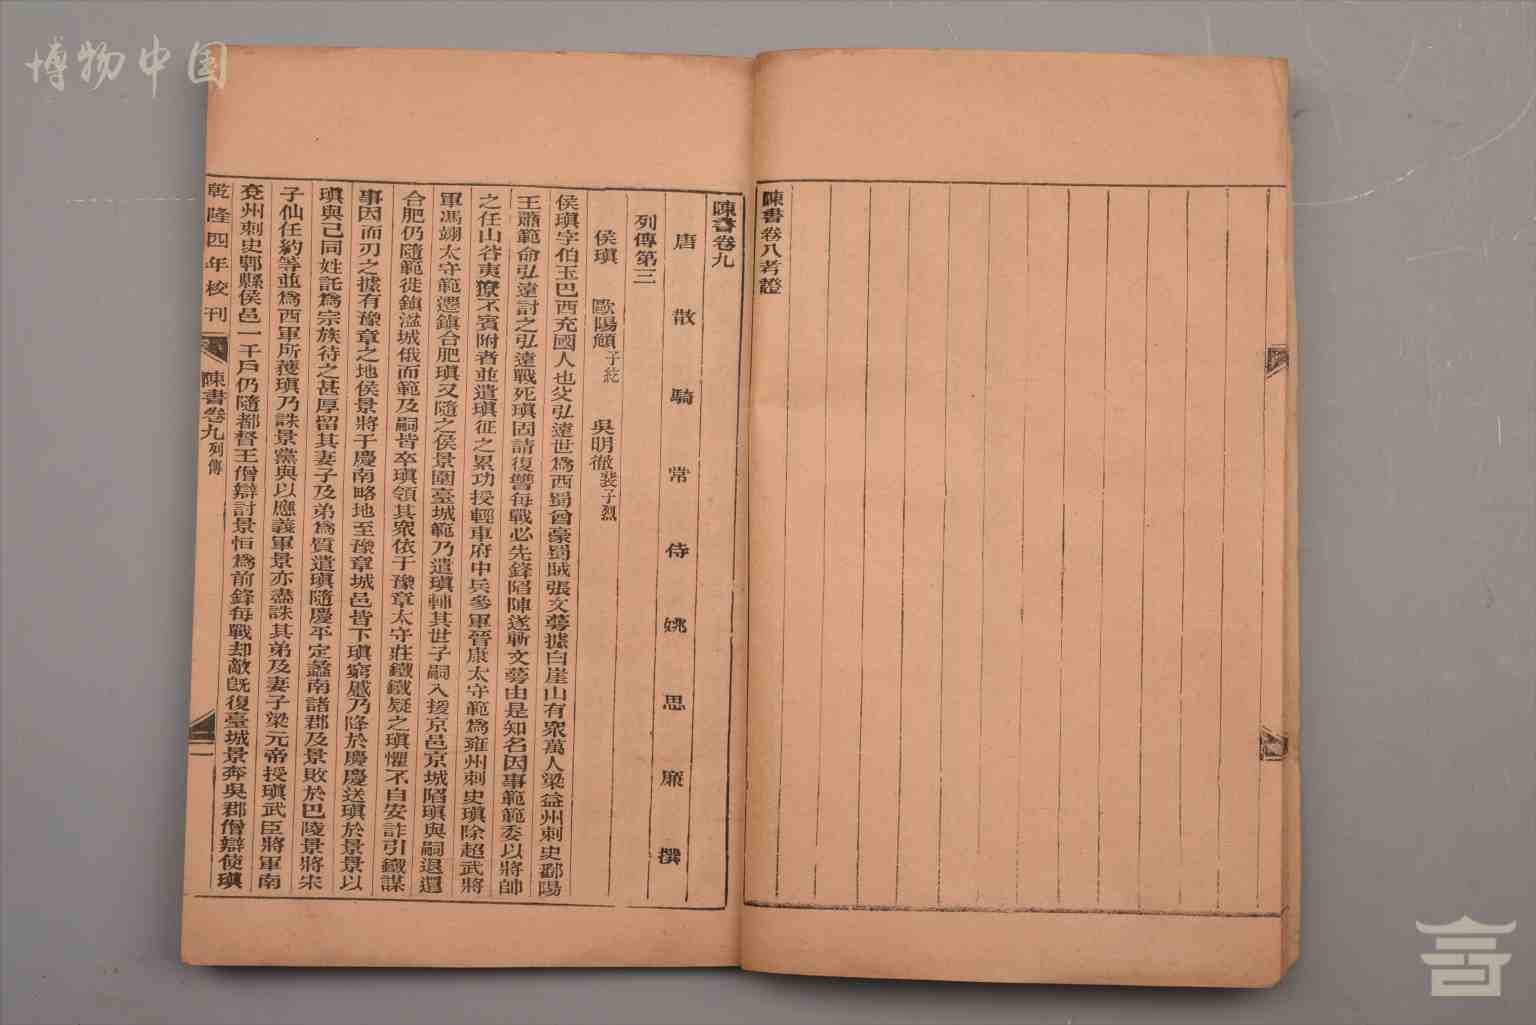 博物中国
陳書卷八考證
陳書卷九
唐散騎常侍姚思廉撰
列傳第三
侯瑱 歐陽頠子紇 吳明徹裴子烈
侯瑱字伯玉巴西充國人也父弘遠世為西蜀酋豪蜀賊張文萼據白崖山有眾萬人梁益州刺史鄱陽
王蕭範命弘遠討之弘遠戰死瑱固請復讐每戰必先鋒陷陣遂斬文萼由是知名因事範範委以將帥
之任山谷夷獠不賓附者並遣瑱征之累功授輕車府中兵參軍晉康太守範為雍州刺史瑱除超武將
軍馮翊太守範遷鎮合肥瑱又隨之侯景圍臺城範乃遣瑱輔其世子嗣入援京邑京城陷瑱與嗣退還
合肥仍隨範徙鎮湓城俄而範及嗣皆卒瑱領其眾依于豫章太守莊鐵鐵疑之瑱懼不自安詐引鐵謀
事因而刃之據有豫章之地侯景將于慶南略地至豫章城邑皆下瑱窮蹙乃降於慶慶送瑱於景景以
瑱與己同姓託為宗族待之甚厚留其妻子及弟為質遣瑱隨慶平定蠡南諸郡及景敗於巴陵景將宋
子仙任約等並為西軍所獲瑱乃誅景黨與以應義軍景亦盡誅其弟及妻子梁元帝授瑱武臣將軍南
兗州刺史郫縣侯邑一千戶仍隨都督王僧辯討景恒為前鋒每戰却敵既復臺城景奔吳郡僧辯使瑱
乾隆四年校刊
陳書卷九 列傳
一